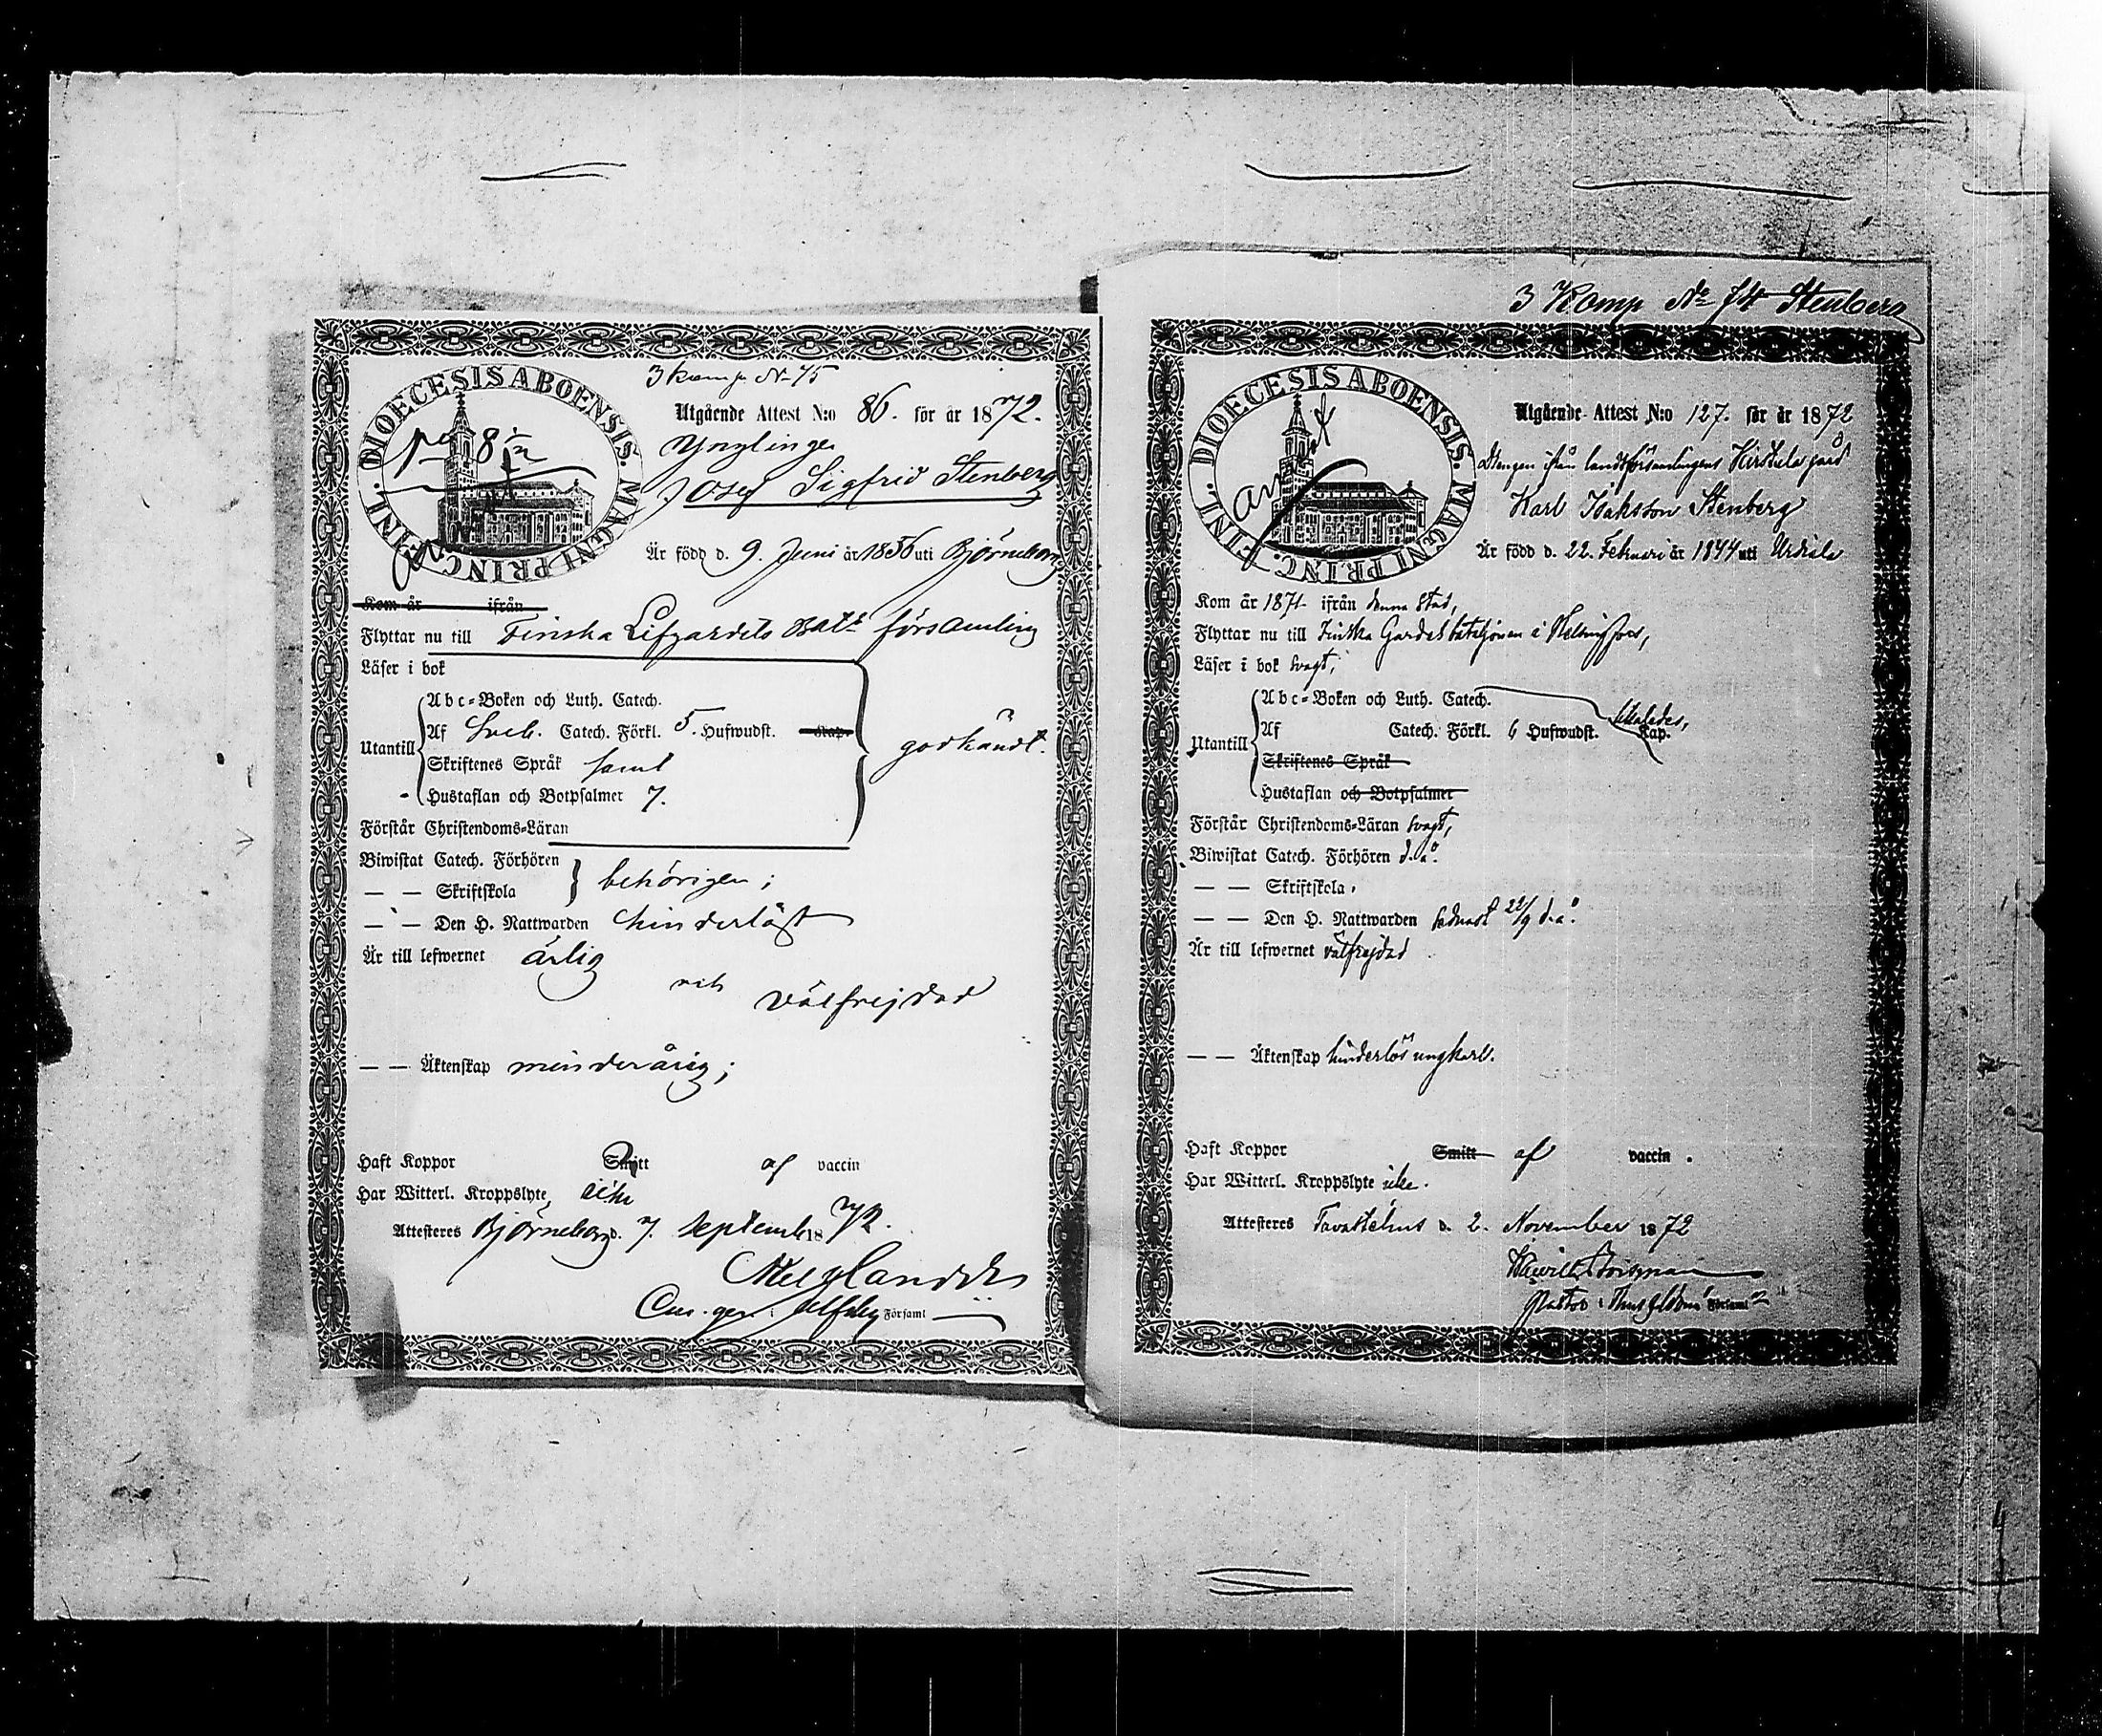 3 Komp No 75
DIOECESIS ABOENSIS. MAGNI PRINC. FINL.
Utgående Attest N:o 86. för år 1872.
Ynglinge
Josef Sigfrid Stenberg
Är född d. 9. Juni år 1856 uti Björneborg
Kom år ifrån
Flyttar nu till Finska Lifgardets Batt. församling
Läser i bok
Utantill
Abc-Boken och Luth. Catech.
Af Sveb. Catech. Förkl. 5. Hufwudst. Kap.
Skriftenes Språk samt
Hustaflan och Botpsalmer 7.
godkändt.
Förstår Christendoms-Läran
Biwistat Catech. Förhören
— — Skriftskola
behörigen;
— — Den H. Nattwarden hinderlöst
Är till lefwernet ärlig
och välfrejdad
— — Äktenskap minderårig;
Haft Koppor Smitt af vaccin
Har Witterl. Kroppslyte icke
Attesteres Björneborg d. 7. September 1872.
i Församl
3 Komp No 74 Stenberg
DIOECESIS ABOENSIS. MAGNI PRINC. FINL.
Utgående Attest N:o 127. för år 1872
Drengen ifrån landsförsamlingens Hirsilä gård
Karl Isaksson Stenberg
Är född d. 22. Februari år 1844 uti Urdiala
Kom år 1871 ifrån denna Stad,
Flyttar nu till Finska Gardesbataljonen i Helsingfors,
Läser i bok svagt,
Utantill
Abc-Boken och Luth. Catech.
Af Catech. Förkl. 6 Hufwudst. Kap.
Skriftenes Språk
Hustaflan och Botpsalmer
Förstår Christendoms-Läran svagt,
Biwistat Catech. Förhören d. å.
— — Skriftskola,
— — Den H. Nattwarden sednast 22/9 d. å.
Är till lefwernet välfrejdad
— — Äktenskap hinderlös ungkarl.
Haft Koppor Smitt af vaccin.
Har Witterl. Kroppslyte icke.
Attesteres Tavastehus d. 2. November 1872
Pastor i Församl